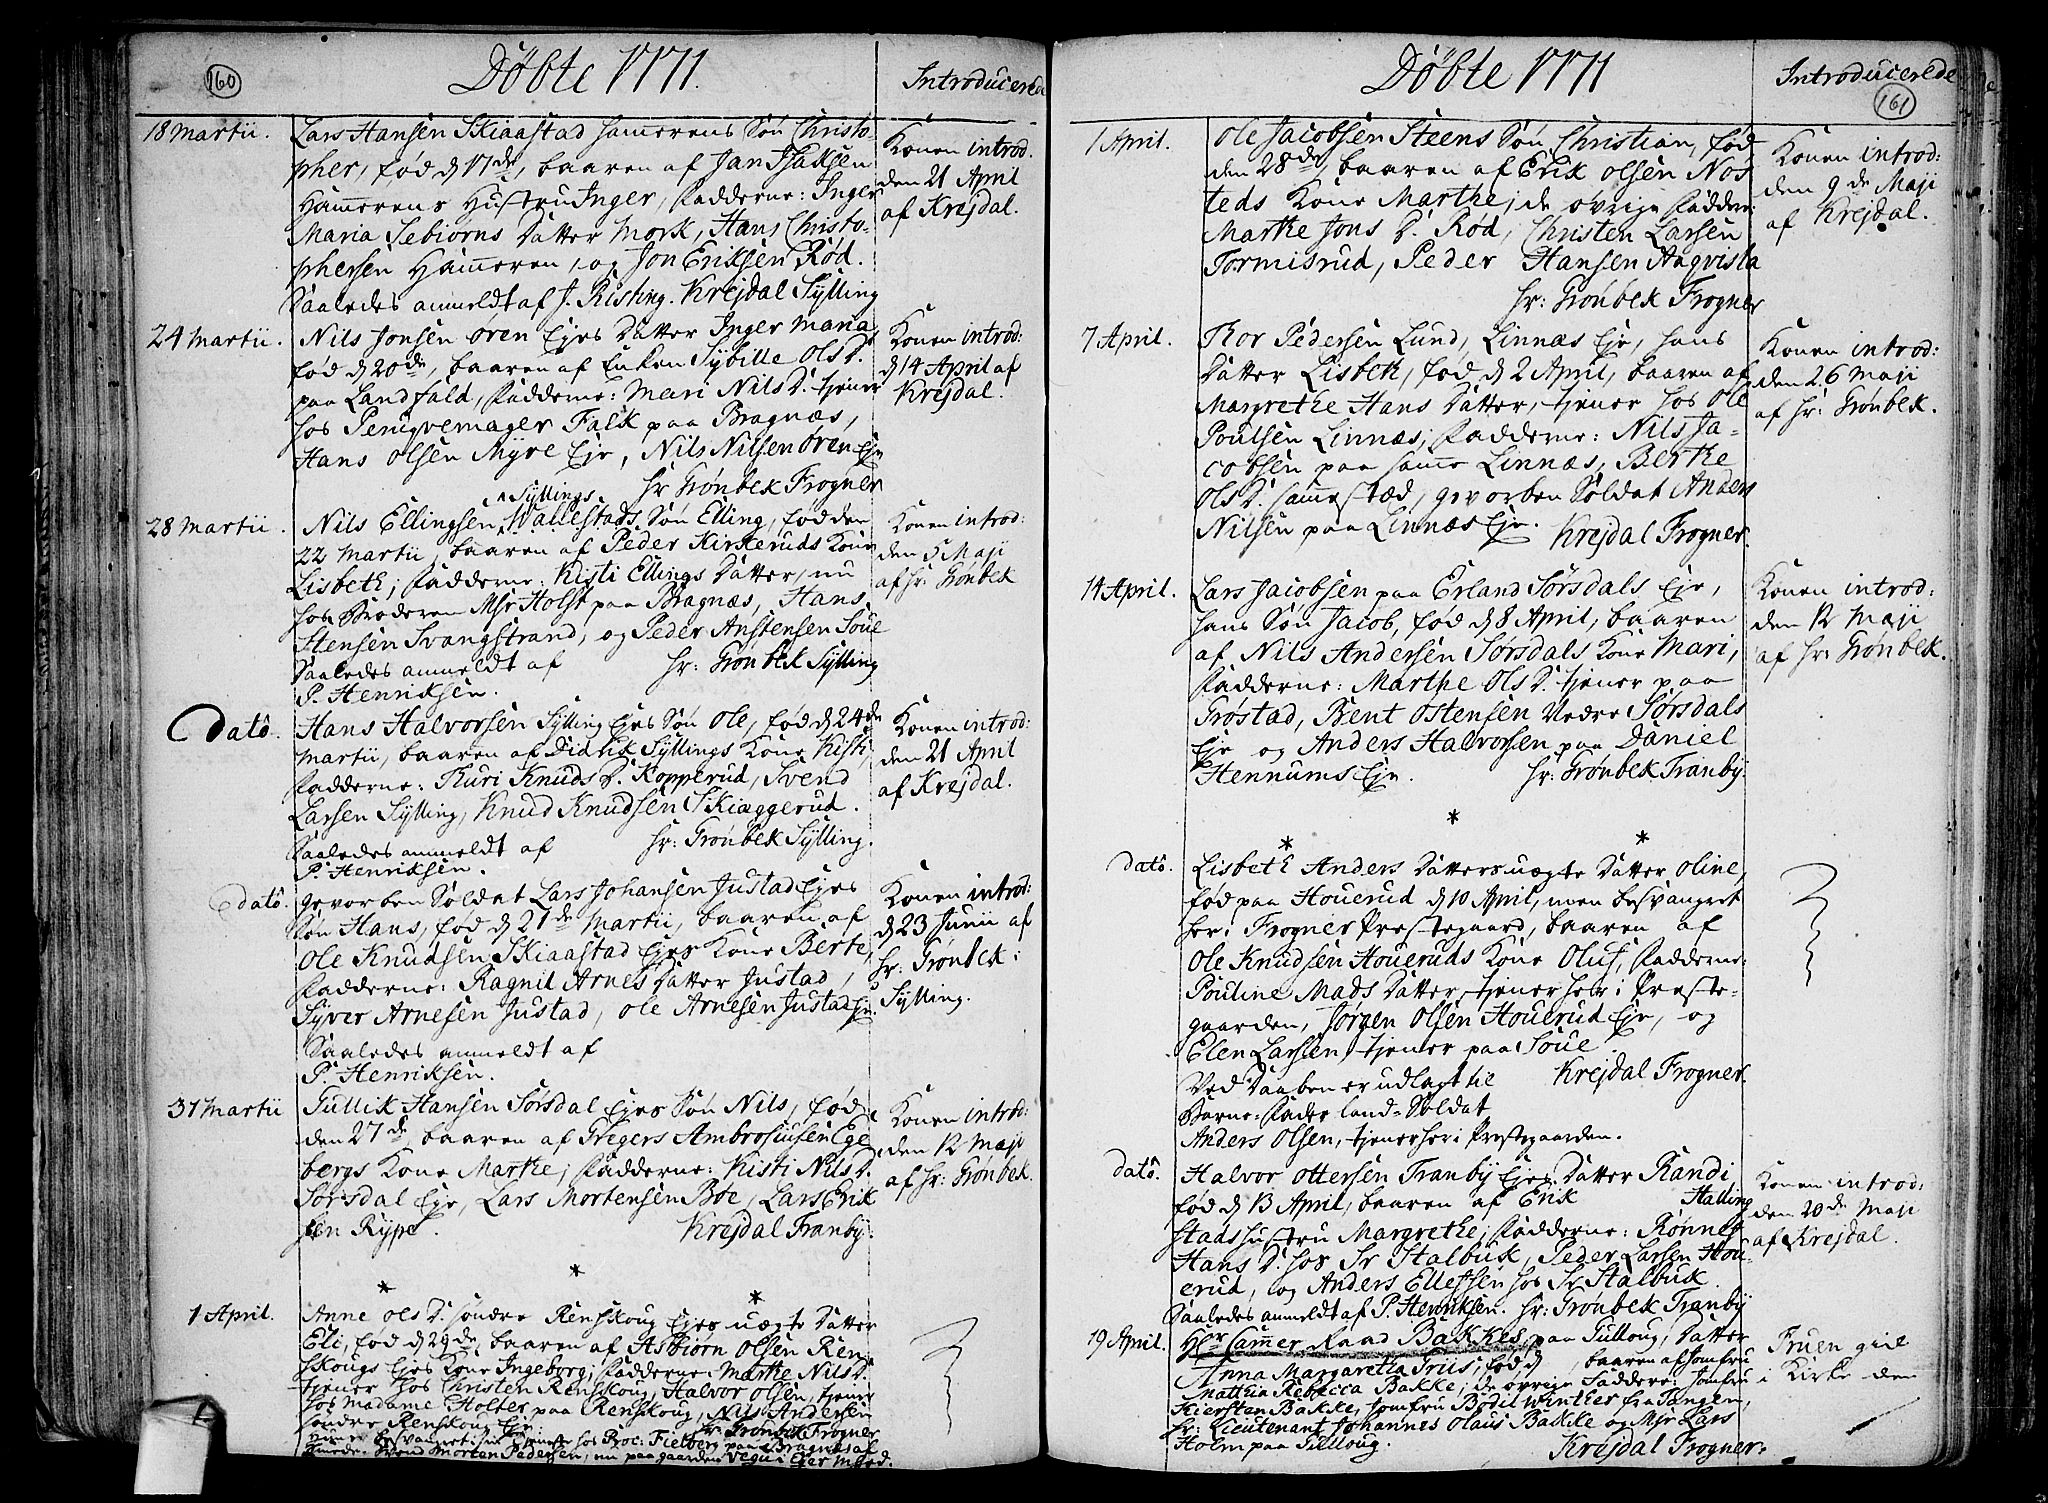 160
Døbte 1771.
Introducerede
18 Martii.
Lars Hansen Skiaastad Hamerens Søn Christo-
pher, fød d 17de, baaren af Jan Isaksen
Hamerens Hustru Inger, Fadderne: Inger
Maria Sebiørns Datter Mork, Hans Christo-
phersen Hameren, og Jon Eriksen Rød.
Saaledes anmeldt af J. Risting. Krejdal Sylling
Konen introd.
den 21 April
af Krejdal.
24 Martii.
Nils Jonsen Øren Ejes Datter Inger Maria,
fød d 20de, baaren af Enken Sybille Ols D.
paa Landfald, Fadderne: Mari Nils D. tjener
hos Perugvemager Falk paa Bragnæs,
Hans Olsen Myre Eje, Nils Nilsen Øren Eje
Hr Grønbek Frogner
Konen introd:
d 14 April af
Krejdal.
28 Martii.
Syllings
Nils Ellingsen Wallestads Søn Elling, fød den
22 Martii, baaren af Peder Kirkeruds Kone
Lisbeth; Fadderne: Kisti Ellings Datter, nu
hos Broderen Msr Holst paa Bragnæs, Hans
Stensen Svangstrand, og Peder Anstensen Soue
Saaledes anmeldt af Hr: Grønbek Sylling
P. Henriksen.
Konen introd:
den 5 Maji
af Hr: Grønbek
Dato.
Hans Halvorsen Sylling Ejes Søn Ole, fød d 24de
Martii, baaren af Didrik Syllings Kone Kisti,
Fadderne: Thuri Knuds D. Kopperud, Svend
Larsen Sylling, Knud Knudsen Skiæggerud.
Saaledes anmeldt af Hr: Grønbek Sylling.
P. Henriksen.
Konen introd:
den 21 April
af Krejdal.
dato.
gevorben Soldat Lars Johansen Justad Ejes
Søn Hans, fød d 21de Martii, baaren af
Ole Knudsen Skiaastad Ejes Kone Berte,
Fadderne: Ragnil Arnes Datter Justad,
Syver Arnesen Justad, Ole Arnesen Justad Eje.
Saaledes anmeldt af
P. Henriksen.
Konen introd:
d 23 Junii af
Hr: Grønbek:
Sylling.
31 Martii
Gullik Hansen Sørsdal Ejes Søn Nils, fød
den 27de, baaren af Gregers Ambrosiusen Ege
bergs Kone Marthe; Fadderne: Kisti Nils D.
Sørsdal Eje, Lars Mortensen Bøe, Lars Erik
sen Rype. Krejdal Tranby.
Konen introd:
den 12 Maji
af Hr: Grønbek.
* * *
1 April.
Anne Ols D. søndre Renskoug Ejes uægte Datter
Eli, fød d 29de, baaren af Asbiørn Olsen Ren-
skougs Ejes Kone Ingeborg; Fadderne: Marthe Nils D.
tjener hos Christen Renskoug, Halvor Olsen, tjener
hos Madame Holter paa Renskoug, Nils Andersen
søndre Renskoug Eje. Hr: Grønbek Frogner
hos Proc: Fielberg paa Bragnæs af
Morten Pedersen, nu paa gaarden Vegu i Eger
161
Døbte 1771
Introducerede
1 April.
Ole Jacobsen Steens Søn Christian, fød
den 28de, baaren af Erik Olsen Nos
teds Kone Marthe, de øvrige Faddere
Marthe Jons D. Rød, Christen Larsen
Tormisrud, Peder Hansen Aaqvisla
Hr: Grønbek Frogner
Konen introd:
den 9de Maji
af Krejdal.
7 April.
Thor Pedersen Lund, Linnæs Eje, hans
Datter Lisbeth, fød d 2 April, baaren af
Margrethe Hans Datter, tjener hos Ole
Poulsen Linnæs; Fadderne: Nils Ja-
cobsen paa samme Linnæs, Berthe
Ols D. sammestæd, gevorben Soldat Anders
Nilsen paa Linnæs Eje. Krejdal Frogner.
Konen introd:
den 26 Maji
af Hr: Grønbek.
14 April.
Lars Jacobsen paa Erland Sørsdals Eje,
hans Søn Jacob, fød d 8 April, baaren
af Nils Andersen Sørsdals Kone Mari,
Fadderne: Marthe Ols D. tjener paa
Grøstad, Bent Ostensen Vedre Sørsdals
Eje og Anders Halvorsen paa Daniel
Hennums Eje. Hr: Grønbek Tranby
Konen introd:
den 12 Maji
af Hr: Grønbek.
* * *
dato.
Lisbeth Anders Datters uægte Datter Oline,
fød paa Houerud d 10 April, men besvangert
her i Frogner Præstegaard, baaren af
Ole Knudsen Houeruds Kone Oluf, Fadderne:
Pouline Mads Datter, tjener her i Præste-
gaarden, Jørgen Olsen Houerud Eje, og
Elen Larsen, tjener paa Soue.
Ved Daaben er udlagt til Krejdal Frogner.
Barne-Fader land-Soldat
Anders Olsen, tjener her i Præstegaarden.
dato.
Halvor Ottersen Tranby Ejes Datter Randi
fød d 13 April, baaren af Erik Halling
stads Hustru Margrethe; Fadderne: Rønnes
Hans D. hos Sr Stalbuk, Peder Larsen Hou-
erud, og Anders Ellefsen hos Sr Stalbuk.
Saaledes anmeldt af P. Henriksen. Hr: Grønbek Tranby
Konen introd:
den 20de Maji
af Krejdal.
19 April.
Hr Cammer Raad Bakkes paa Gulloug, Datter
Anna Margaretha Friis; fød d , baaren af Jomfru
Matthia Rebecca Bakke; de øvrige Faddere: Jomfru
Kiersten Bakke, Jomfru Bodil Winther fra Tangen,
Hr: Lieutenant Johannes Olaus Bakke og Msr Lars
Holm paa Gulloug. Krejdal Frogner.
Fruen giik
i Kirke den